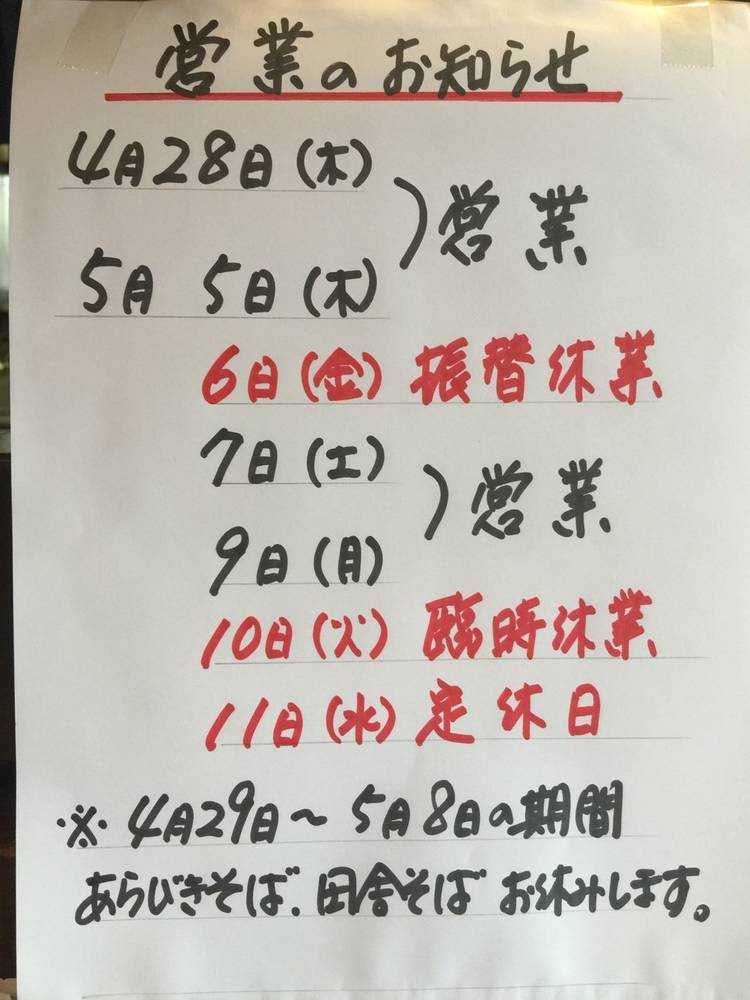 営業のお知らせ
4月28日(木)
)営業
5月 5日(木)
6日(金) 振替休業
7日(土)
)営業
9日(月)
10日(火) 臨時休業
11日(水) 定休日
※ 4月29日～5月8日の期間
あらびきそば、田舎そば お休みします。